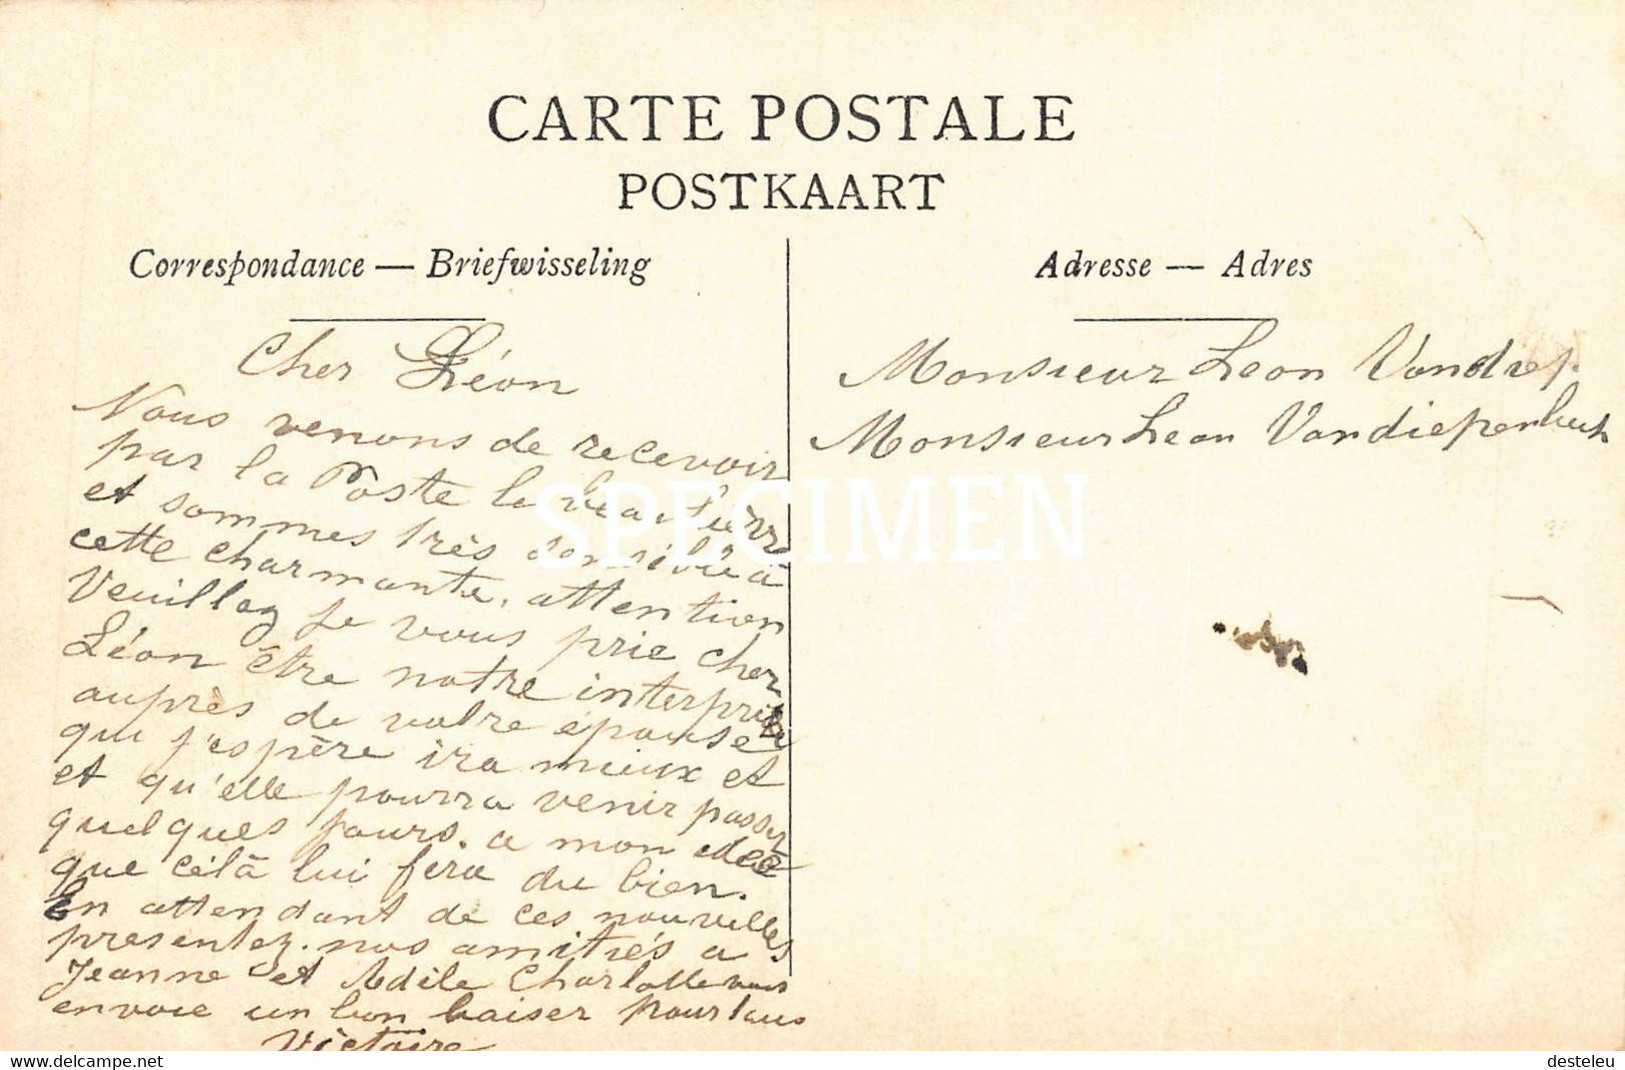 CARTE POSTALE
POSTKAART
Correspondance — Briefwisseling
Cher Léon
Nous venons de recevoir
par la Poste la
et sommes très sensible à
cette charmante, attention
Veuillez Je vous prie cher
Léon être notre interprète
auprès de votre épouse
qui j'espère ira mieux et
et qu'elle pourra venir passer
quelques jours. a mon idée
que célà lui fera du bien.
En attendant de ces nouvelles
presentez. nos amitiés a
Jeanne et Adile Charlotte vous
envoie un bon baiser pour tous
Victoire
Adresse — Adres
Monsieur Leon Vandiep.
Monsieur Leon Vandiepenbuch
SPECIMEN
www.delcampe.net
desteleu